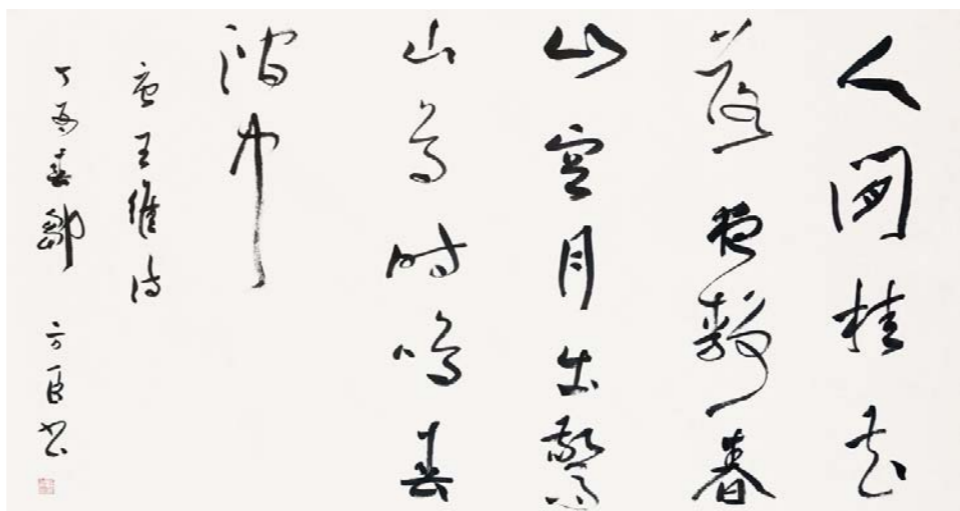 人閒桂花
落夜靜春
山空月出驚
山鳥時鳴春
澗中
唐王維詩
丁酉春鄒方臣書